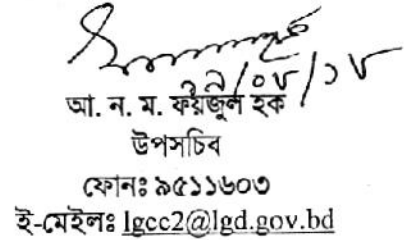 আ. ন. ম. ফয়জুল হক
উপসচিব
ফোনঃ ৯৫১১৬০৩
ই-মেইলঃ lgcc2@lgd.gov.bd